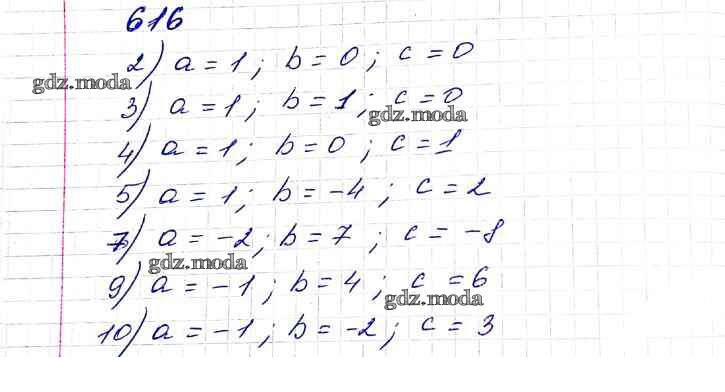 616
2) a = 1; b = 0; c = 0
gdz.moda
3) a = 1; b = 1; c = 0
gdz.moda
4) a = 1; b = 0; c = 1
5) a = 1; b = -4; c = 2
7) a = -2; b = 7; c = -8
gdz.moda
9) a = -1; b = 4; c = 6
gdz.moda
10) a = -1; b = -2; c = 3